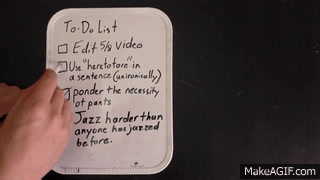 To-Do List
Edit 5/8 video
Use "heretofore" in
a sentence (unironically)
ponder the necessity
of pants
Jazz harder than
anyone has jazzed
before.
MakeAGIF.com